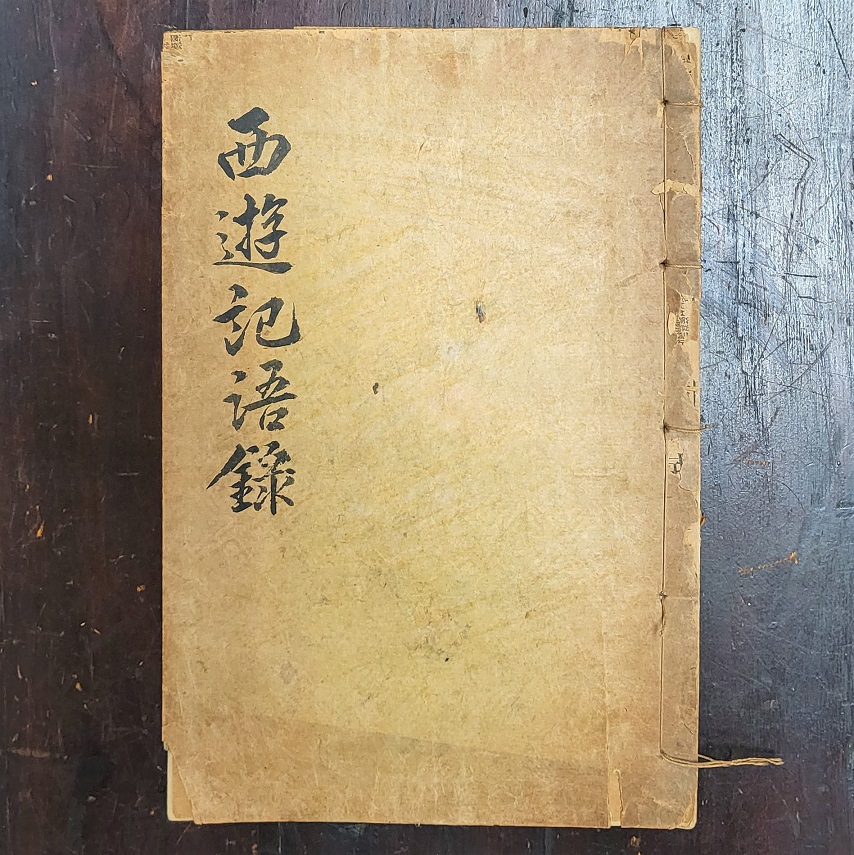 西遊記語錄